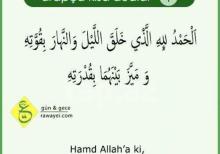 اَلْحَمْدُ لِلهِ الَّذِي خَلَقَ اللَّيْلَ وَالنَّهَارَ بِقُوَّتِهِ
وَ مَيَّزَ بَيْنَهُمَا بِقُدْرَتِهِ
gün & gece
rawayei.com
Hamd Allah'a ki,